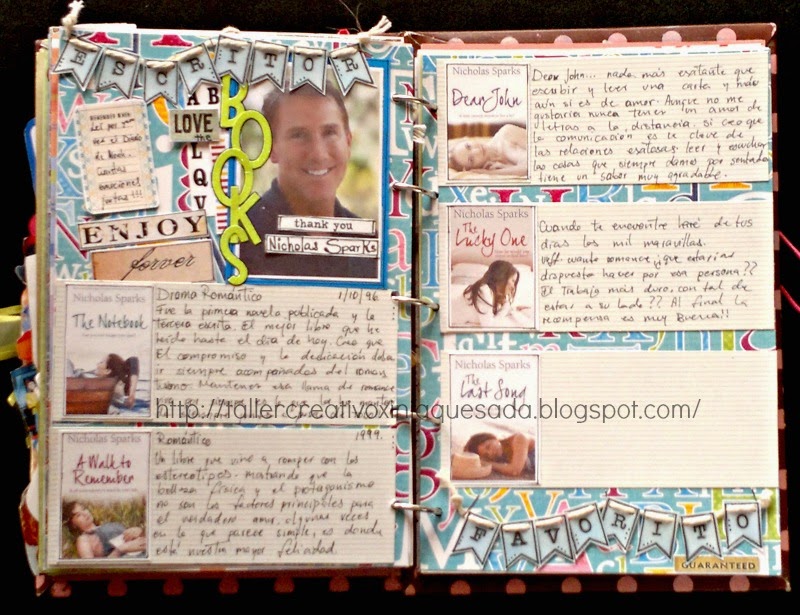 ESCRITOR
REMEMBER WHEN
Leí por
vez el Diario
de Noah.
Cuantas
emociones
juntas!!!
A B
LOVE
the
L
Q
V
BOOKS
ENJOY
forver
thank you
Nicholas Sparks
Nicholas Sparks
The Notebook
Drama Romántico 1/10/96
Fue la primera novela publicada y la
tercera escrita. El mejor libro que he
leído hasta el día de hoy. Creo que
El compromiso y la dedicación deben
ir siempre acompañados del roman
ticismo. Mantener esa llama de romance
Nicholas Sparks
A Walk to
Remember
Romántico 1999.
Un libro que vino a romper con los
estereotipos. mostrando que la
belleza física y el protagonismo
no son los factores principales para
el verdadero amor. algunas veces
en lo que parece simple, es donde
está nuestra mayor felicidad.
Nicholas Sparks
Dear John
Dear John... nada más exitante que
escribir y leer una carta y más
aún si es de amor. Aunque no me
gustaría nunca tener un amor de
letras a la distancia, si creo que
la comunicación es la clave de
las relaciones exitosas. leer y escuchar
las cosas que siempre damos por sentado
tiene un sabor muy agradable.
Nicholas Sparks
The
Lucky One
Cuando te encuentre haré de tus
días las mil maravillas.
Uff cuanto romance, que estarías
dispuesto hacer por esa persona??
El trabajo más duro con tal de
estar a su lado?? Al final la
recompensa es muy buena!!
Nicholas Sparks
The
Last Song
FAVORITO
GUARANTEED
http://tallercreativoxiniaquesada.blogspot.com/